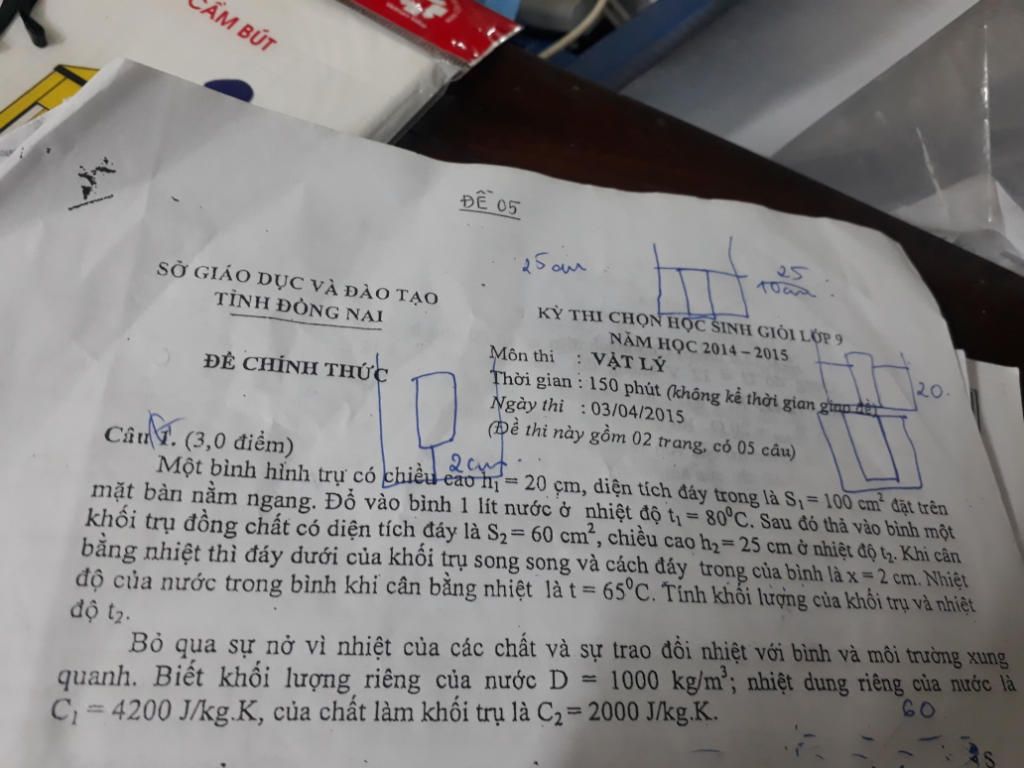 CẨM BÚT
ĐỀ 05
25 cm
25
10cm
SỞ GIÁO DỤC VÀ ĐÀO TẠO
TỈNH ĐỒNG NAI
ĐỀ CHÍNH THỨC
KỲ THI CHỌN HỌC SINH GIỎI LỚP 9
NĂM HỌC 2014 – 2015
Môn thi : VẬT LÝ
Thời gian : 150 phút (không kể thời gian giao đề)
Ngày thi : 03/04/2015
(Đề thi này gồm 02 trang, có 05 câu)
20
2cm
Câu 1. (3,0 điểm)
Một bình hình trụ có chiều cao h₁ = 20 cm, diện tích đáy trong là S₁ = 100 cm² đặt trên
mặt bàn nằm ngang. Đổ vào bình 1 lít nước ở nhiệt độ t₁ = 80⁰C. Sau đó thả vào bình một
khối trụ đồng chất có diện tích đáy là S₂ = 60 cm², chiều cao h₂ = 25 cm ở nhiệt độ t₂. Khi cân
bằng nhiệt thì đáy dưới của khối trụ song song và cách đáy trong của bình là x = 2 cm. Nhiệt
độ của nước trong bình khi cân bằng nhiệt là t = 65⁰C. Tính khối lượng của khối trụ và nhiệt
độ t₂.
Bỏ qua sự nở vì nhiệt của các chất và sự trao đổi nhiệt với bình và môi trường xung
quanh. Biết khối lượng riêng của nước D = 1000 kg/m³; nhiệt dung riêng của nước là
C₁ = 4200 J/kg.K, của chất làm khối trụ là C₂ = 2000 J/kg.K.
60